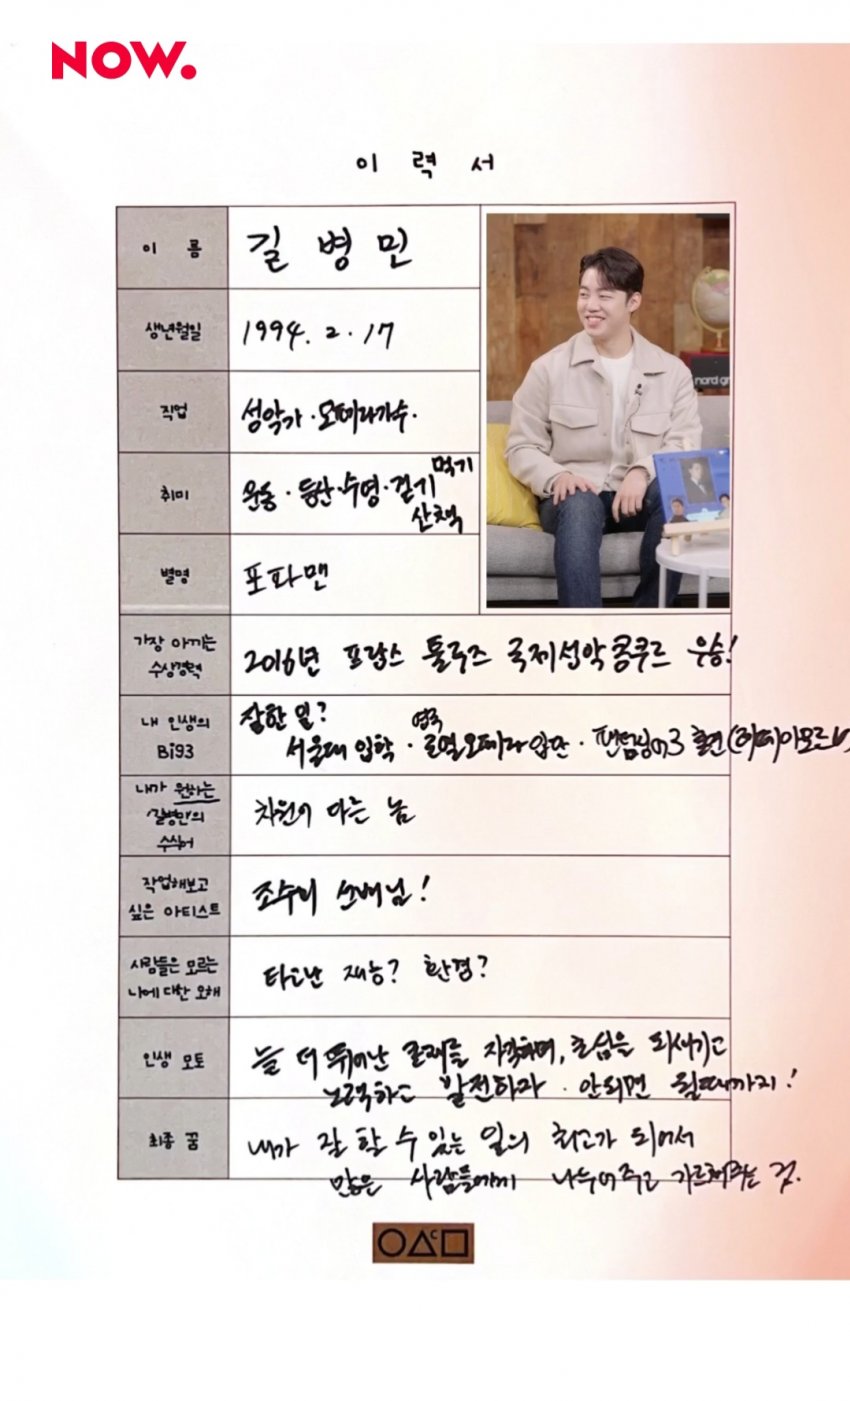 NOW.
이 력 서
이 름
길 병 민
생년월일
1994. 2. 17
직업
성악가 · 오페라가수.
취미
먹기
운동 · 등산 · 수영 · 걷기
산책
별명
포파맨
가장 아끼는
수상경력
2016년 프랑스 툴루즈 국제성악콩쿠르 우승!
내 인생의
Big3
잘한 일?
영국
서울대 입학 · 로열오페라 입단 · 팬텀싱어3 출연 (레떼아모르
내가 원하는
길병민의
수식어
차원이 다른 놈
작업해보고
싶은 아티스트
조수미 선배님!
사람들은 모르는
나에 대한 오해
타고난 재능? 환경?
인생 모토
늘 더 뛰어난 존재를 자각하며, 초심을 되새기고
노력하고 발전하자 · 안되면 될때까지!
최종 꿈
내가 잘 할 수 있는 일의 최고가 되어서
많은 사람들에게 나누어주고 가르쳐주는 것.